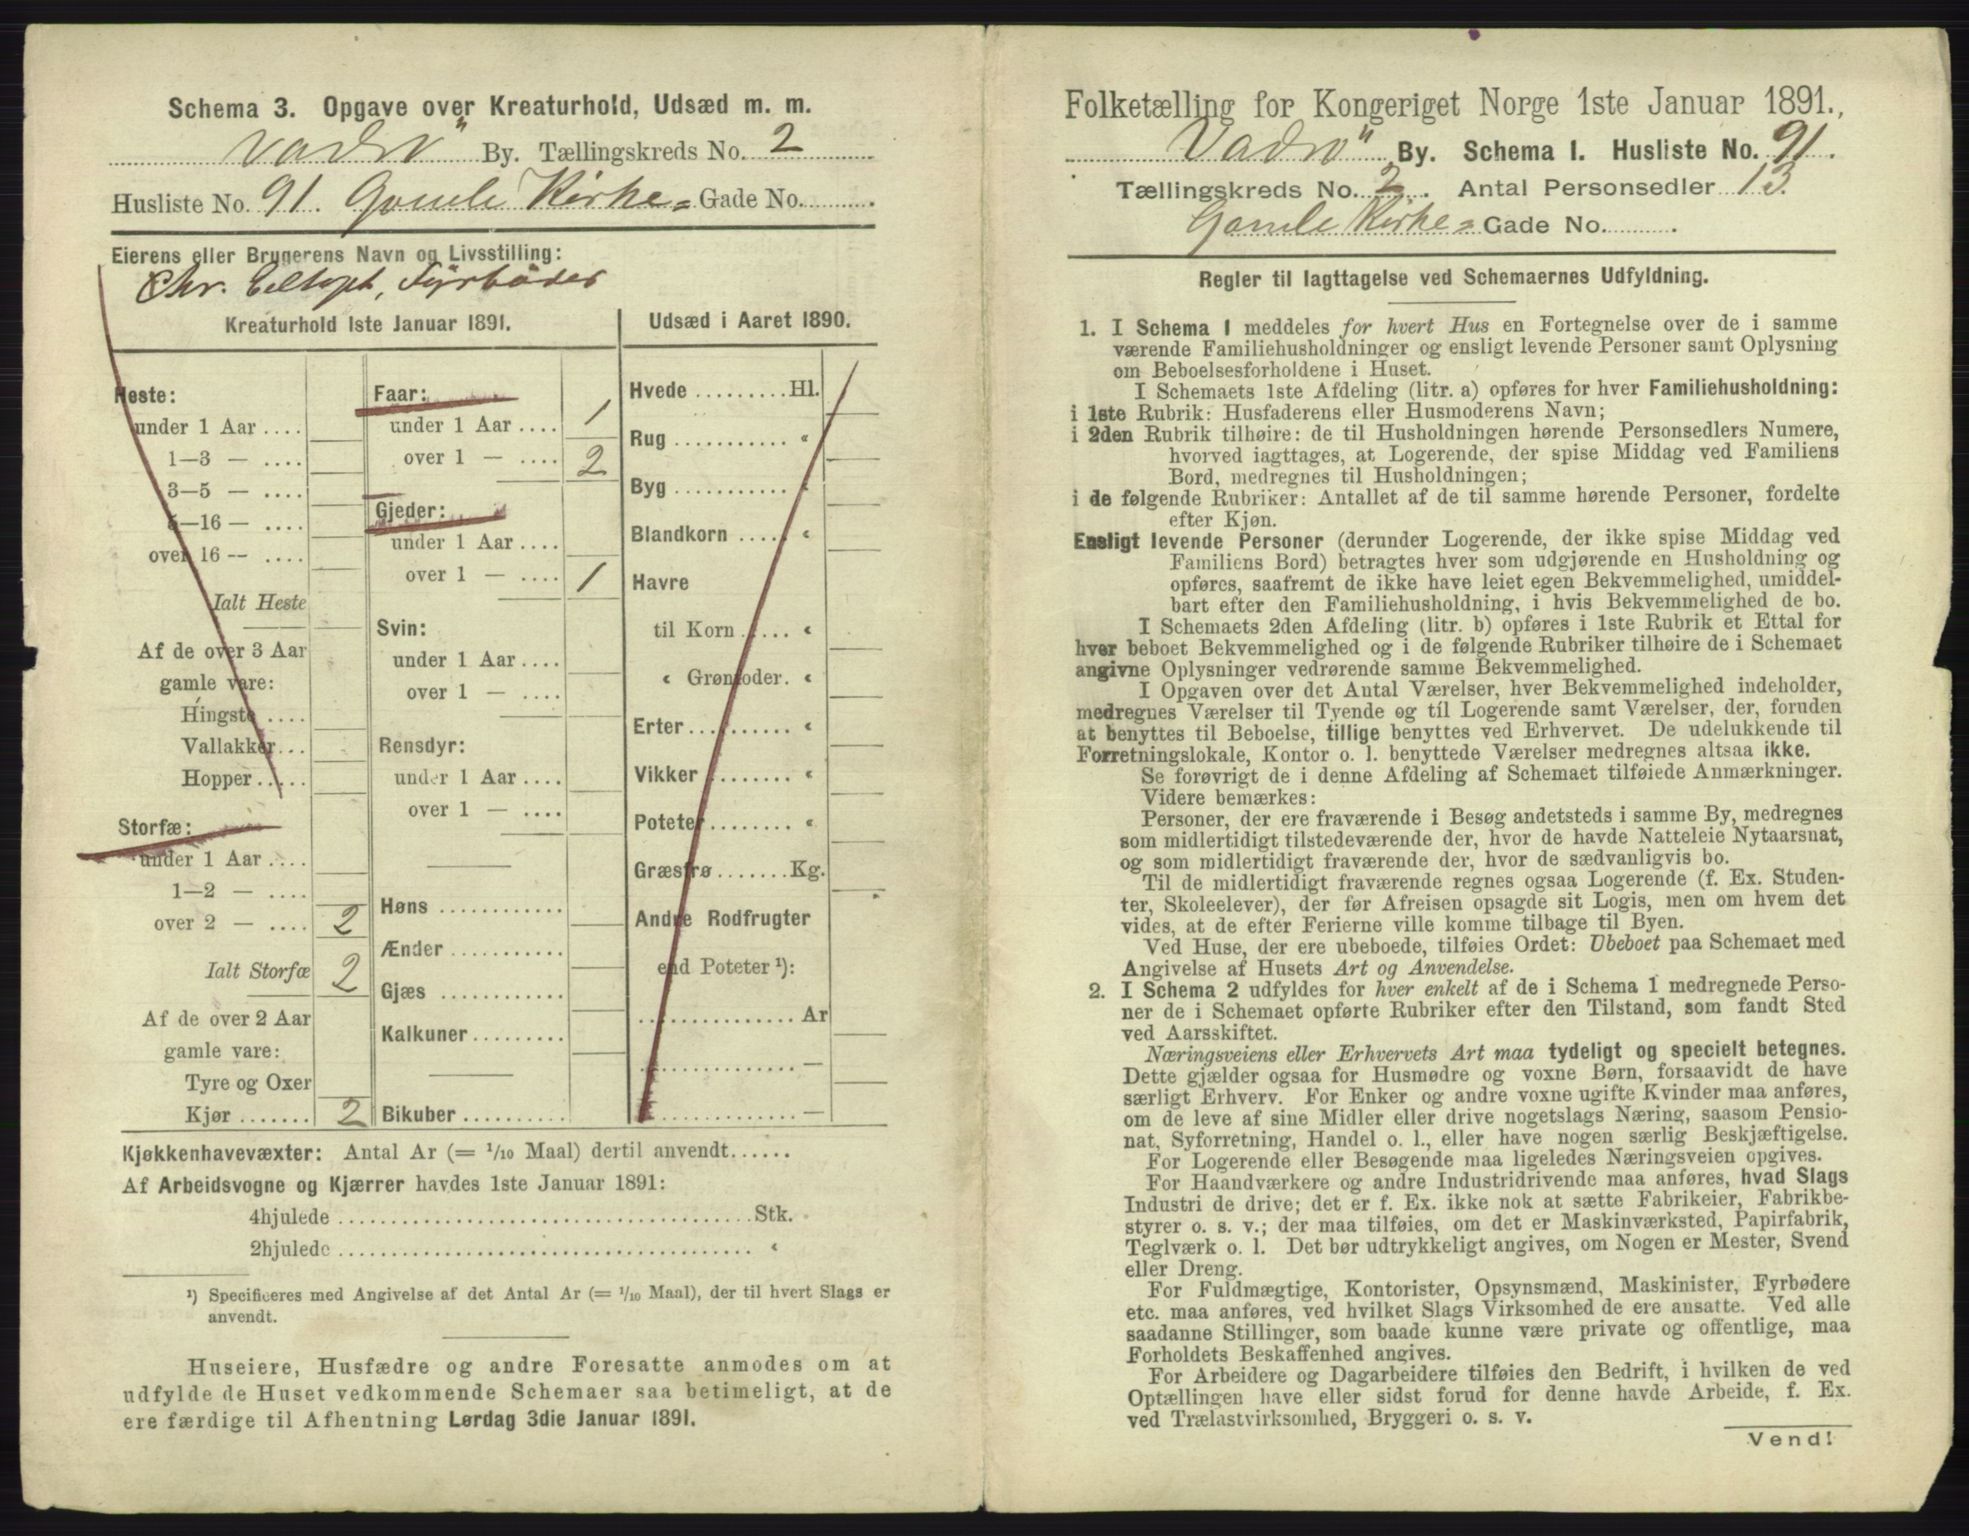 Schema 3. Opgave over Kreaturhold, Udsæd m. m.
Vadsö By. Tællingskreds No. 2
Husliste No. 91. Gamle Kirke= Gade No.
Eierens eller Brugerens Navn og Livsstilling:
Chr. Fyrböder
Kreaturhold 1ste Januar 1891.
Heste:
under 1 Aar ....
1—3 — ....
3—5 — ....
5—16 — ....
over 16 — ....
Ialt Heste
Af de over 3 Aar
gamle vare:
Hingste ....
Vallakker...
Hopper.....
Storfæ:
under 1 Aar ....
1—2 — ....
over 2 — .... 2
Ialt Storfæ 2
Af de over 2 Aar
gamle vare:
Tyre og Oxer
Kjør ....... 2
Faar:
under 1 Aar .... 1
over 1 — .... 2
Gjeder:
under 1 Aar ....
over 1 — .... 1
Svin:
under 1 Aar ....
over 1 — ....
Rensdyr:
under 1 Aar ....
over 1 — ....
Høns ............
Ænder ...........
Gjæs ............
Kalkuner .........
Bikuber ..........
Udsæd i Aaret 1890.
Hvede ......... Hl.
Rug ........... «
Byg ........... «
Blandkorn ..... «
Havre
til Korn ..... «
« Grønfoder. «
Erter ......... «
Vikker ........ «
Poteter ........ «
Græsfrø ....... Kg.
Andre Rodfrugter
end Poteter ¹):
............... Ar
............... —
............... —
Kjøkkenhavevæxter: Antal Ar (= 1/10 Maal) dertil anvendt......
Af Arbeidsvogne og Kjærrer havdes 1ste Januar 1891:
4hjulede ..................................... Stk.
2hjulede ..................................... «
¹) Specificeres med Angivelse af det Antal Ar (= 1/10 Maal), der til hvert Slags er
anvendt.
Huseiere, Husfædre og andre Foresatte anmodes om at
udfylde de Huset vedkommende Schemaer saa betimeligt, at de
ere færdige til Afhentning Lørdag 3die Januar 1891.
Folketælling for Kongeriget Norge 1ste Januar 1891.,
Vadsö By. Schema I. Husliste No. 91.
Tællingskreds No. 2. Antal Personsedler 13
Gamle Kirke= Gade No.
Regler til Iagttagelse ved Schemaernes Udfyldning.
1. I Schema 1 meddeles for hvert Hus en Fortegnelse over de i samme
værende Familiehusholdninger og ensligt levende Personer samt Oplysning
om Beboelsesforholdene i Huset.
I Schemaets 1ste Afdeling (litr. a) opføres for hver Familiehusholdning:
i 1ste Rubrik: Husfaderens eller Husmoderens Navn;
i 2den Rubrik tilhøire: de til Husholdningen hørende Personsedlers Numere,
hvorved iagttages, at Logerende, der spise Middag ved Familiens
Bord, medregnes til Husholdningen;
i de følgende Rubriker: Antallet af de til samme hørende Personer, fordelte
efter Kjøn.
Ensligt levende Personer (derunder Logerende, der ikke spise Middag ved
Familiens Bord) betragtes hver som udgjørende en Husholdning og
opføres, saafremt de ikke have leiet egen Bekvemmelighed, umiddel-
bart efter den Familiehusholdning, i hvis Bekvemmelighed de bo.
I Schemaets 2den Afdeling (litr. b) opføres i 1ste Rubrik et Ettal for
hver beboet Bekvemmelighed og i de følgende Rubriker tilhøire de i Schemaet
angivne Oplysninger vedrørende samme Bekvemmelighed.
I Opgaven over det Antal Værelser, hver Bekvemmelighed indeholder,
medregnes Værelser til Tyende og til Logerende samt Værelser, der, foruden
at benyttes til Beboelse, tillige benyttes ved Erhvervet. De udelukkende til
Forretningslokale, Kontor o. l. benyttede Værelser medregnes altsaa ikke.
Se forøvrigt de i denne Afdeling af Schemaet tilføiede Anmærkninger.
Videre bemærkes:
Personer, der ere fraværende i Besøg andetsteds i samme By, medregnes
som midlertidigt tilstedeværende der, hvor de havde Natteleie Nytaarsnat,
og som midlertidigt fraværende der, hvor de sædvanligvis bo.
Til de midlertidigt fraværende regnes ogsaa Logerende (f. Ex. Studen-
ter, Skoleelever), der før Afreisen opsagde sit Logis, men om hvem det
vides, at de efter Ferierne ville komme tilbage til Byen.
Ved Huse, der ere ubeboede, tilføies Ordet: Ubeboet paa Schemaet med
Angivelse af Husets Art og Anvendelse.
2. I Schema 2 udfyldes for hver enkelt af de i Schema 1 medregnede Perso-
ner de i Schemaet opførte Rubriker efter den Tilstand, som fandt Sted
ved Aarsskiftet.
Næringsveiens eller Erhvervets Art maa tydeligt og specielt betegnes.
Dette gjælder ogsaa for Husmødre og voxne Børn, forsaavidt de have
særligt Erhverv. For Enker og andre voxne ugifte Kvinder maa anføres,
om de leve af sine Midler eller drive nogetslags Næring, saasom Pensio-
nat, Syforretning, Handel o. l., eller have nogen særlig Beskjæftigelse.
For Logerende eller Besøgende maa ligeledes Næringsveien opgives.
For Haandværkere og andre Industridrivende maa anføres, hvad Slags
Industri de drive; det er f. Ex. ikke nok at sætte Fabrikeier, Fabrikbe-
styrer o. s. v.; der maa tilføies, om det er Maskinværksted, Papirfabrik,
Teglværk o. l. Det bør udtrykkeligt angives, om Nogen er Mester, Svend
eller Dreng.
For Fuldmægtige, Kontorister, Opsynsmænd, Maskinister, Fyrbødere
etc. maa anføres, ved hvilket Slags Virksomhed de ere ansatte. Ved alle
saadanne Stillinger, som baade kunne være private og offentlige, maa
Forholdets Beskaffenhed angives.
For Arbeidere og Dagarbeidere tilføies den Bedrift, i hvilken de ved
Optællingen have eller sidst forud for denne havde Arbeide, f. Ex.
ved Trælastvirksomhed, Bryggeri o. s. v.
Vend!